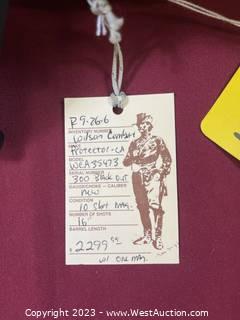 R9-26-6
INVENTORY NUMBER
Wilson Combat
MAKE
Protector-CA
MODEL
WCA35473
SERIAL NUMBER
300 Black Out
GAUGE/CHOKE - CALIBER
New
CONDITION
10 Shot Mag.
NUMBER OF SHOTS
16"
BARREL LENGTH
$ 2299
w/ one mag.
Copyright 2023 - www.WestAuction.com